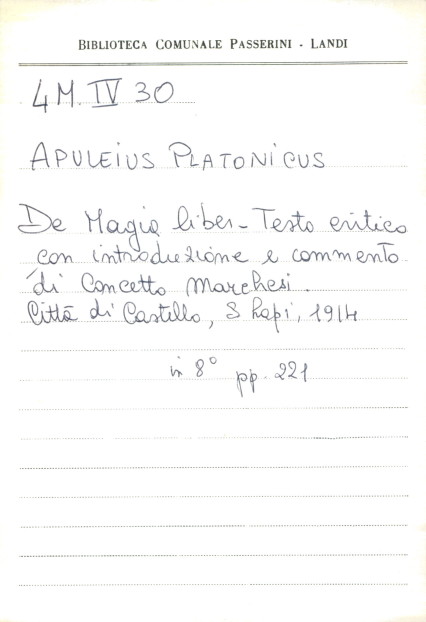 BIBLIOTECA COMUNALE PASSERINI - LANDI
4M. IV 30
APULEIUS PLATONICUS
De Magia liber - Testo critico
con introduzione e commento
di Concetto Marchesi.
Città di Castello, S. Lapi, 1914
in 8° pp. 221